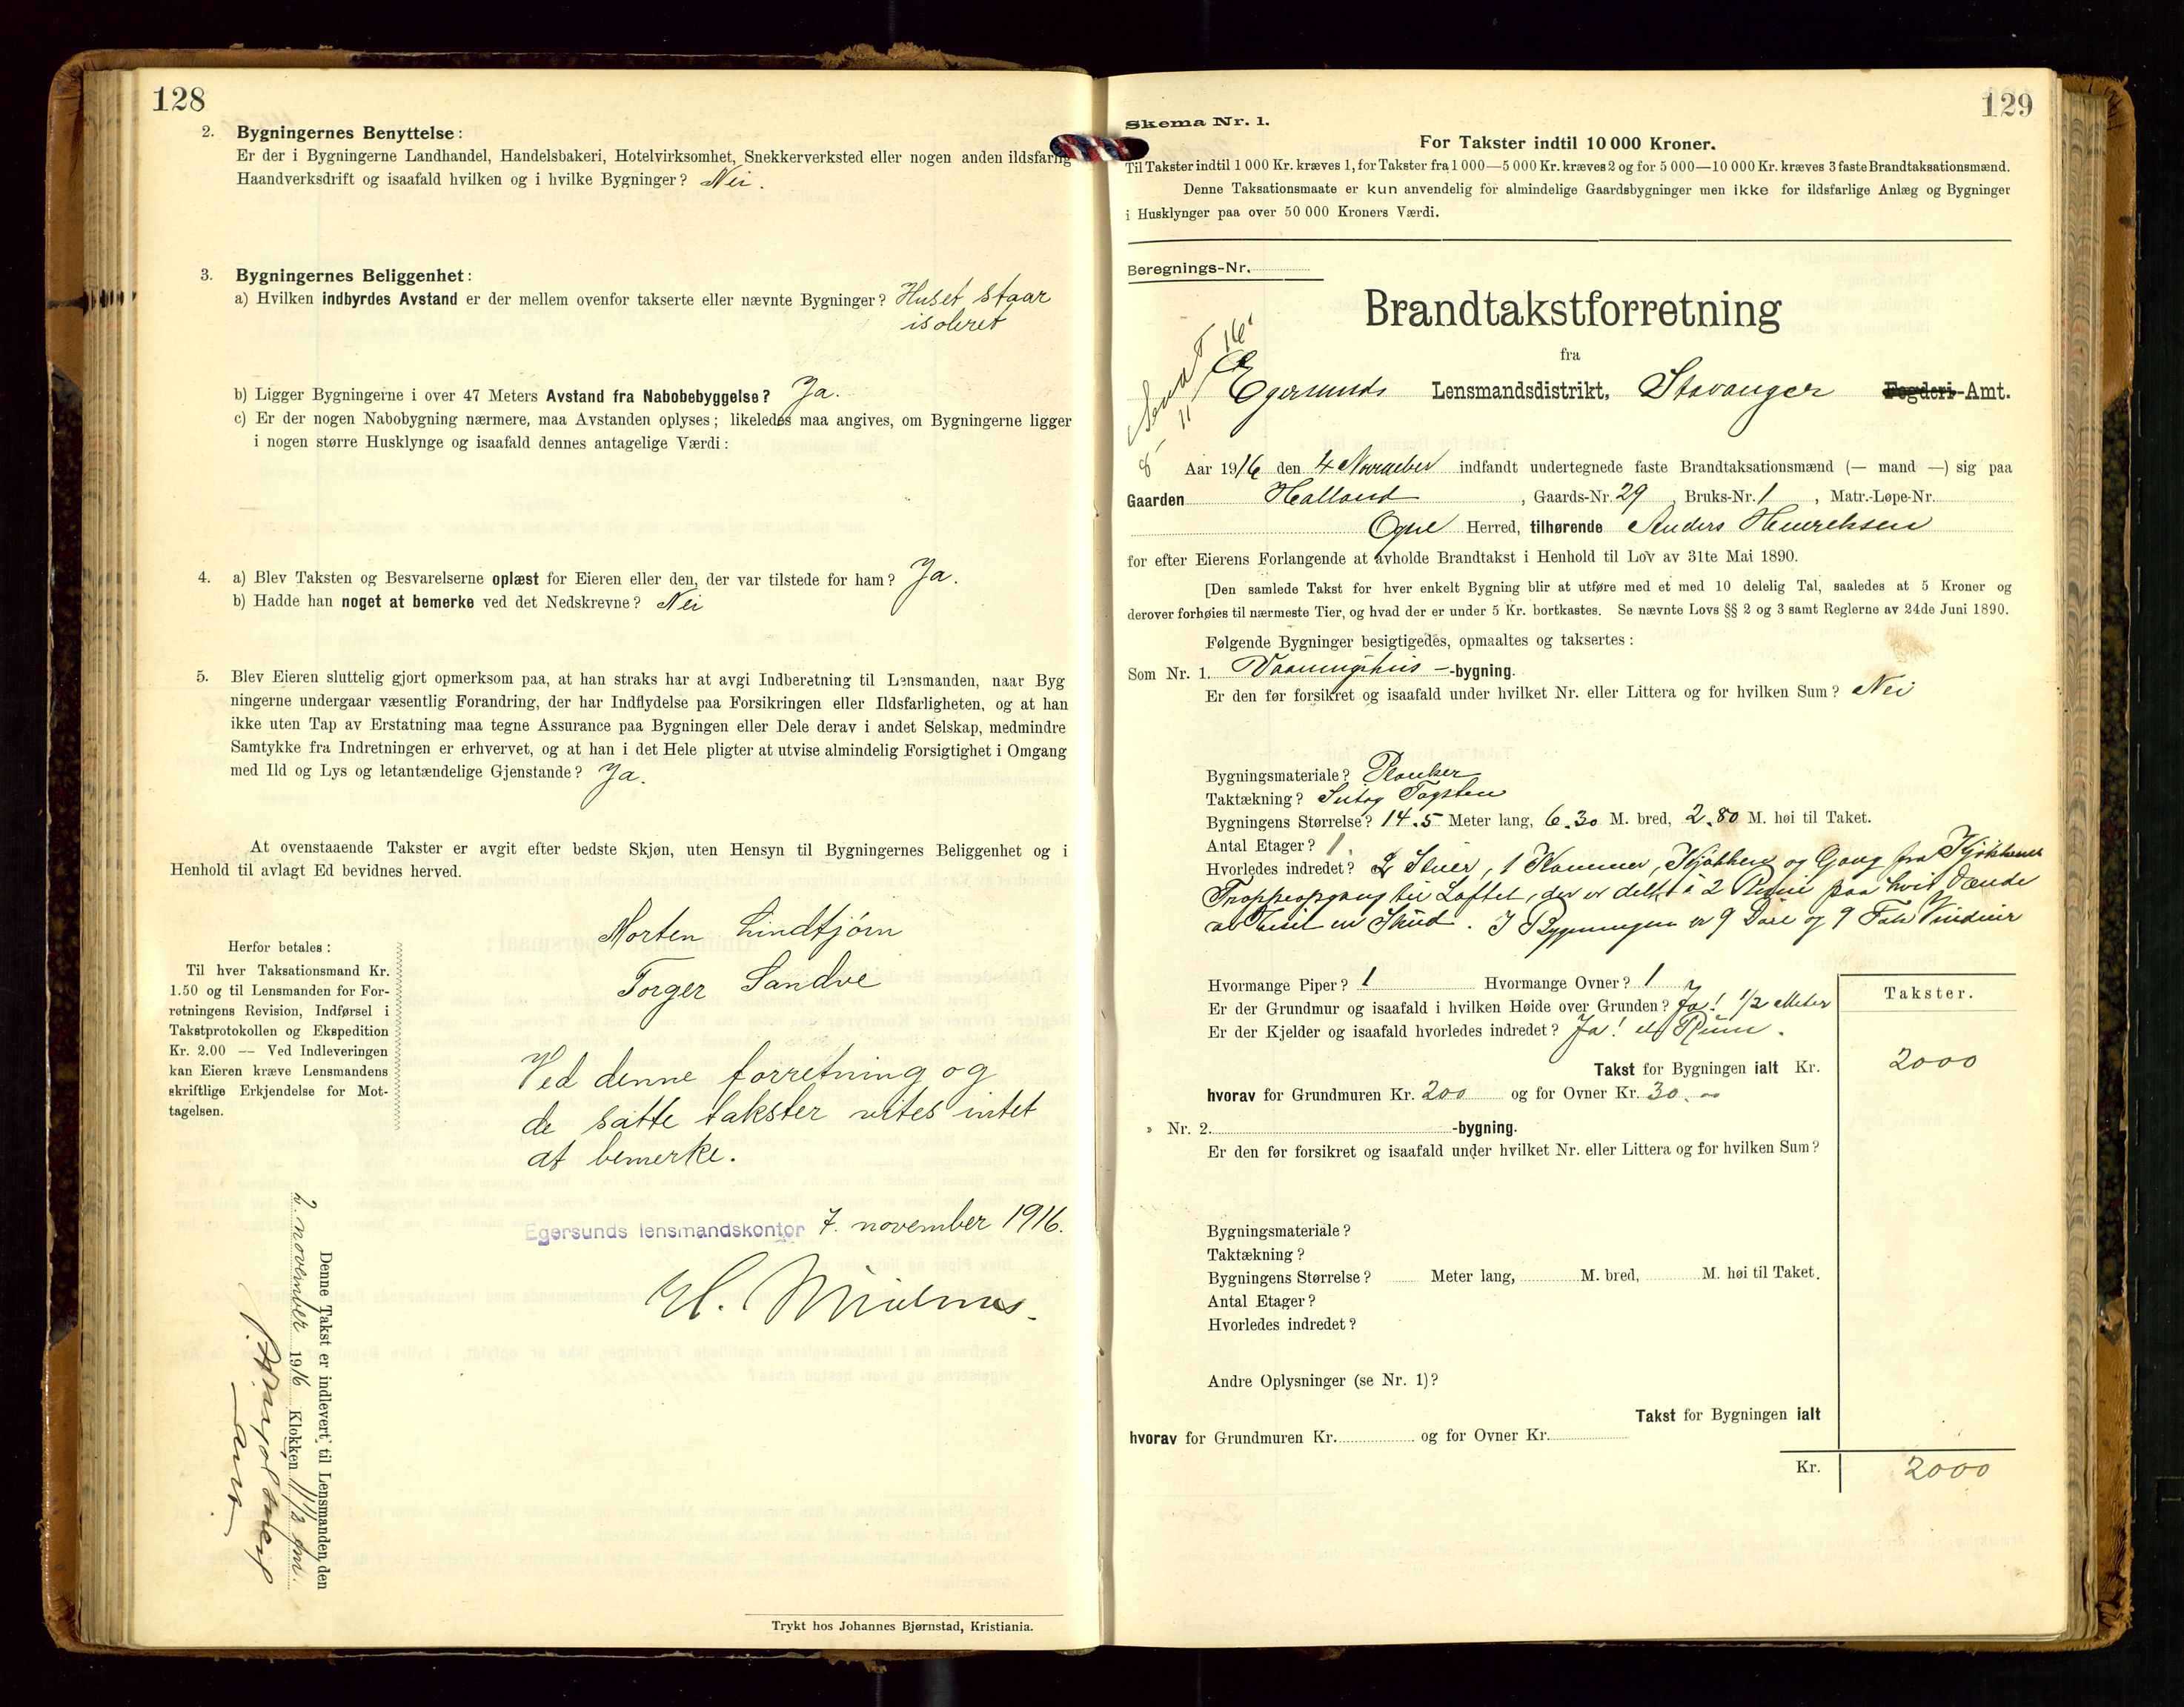 128
2. Bygningernes Benyttelse:
Er der i Bygningerne Landhandel, Handelsbakeri, Hotelvirksomhet, Snekkerverksted eller nogen anden ildsfarlig
Haandverksdrift og isaafald hvilken og i hvilke Bygninger? Nei.
3. Bygningernes Beliggenhet:
a) Hvilken indbyrdes Avstand er der mellem ovenfor takserte eller nævnte Bygninger? Huset staar
isoleret
b) Ligger Bygningerne i over 47 Meters Avstand fra Nabobebyggelse? Ja.
c) Er der nogen Nabobygning nærmere, maa Avstanden oplyses; likeledes maa angives, om Bygningerne ligger
i nogen større Husklynge og isaafald dennes antagelige Værdi:
4. a) Blev Taksten og Besvarelserne oplæst for Eieren eller den, der var tilstede for ham? Ja.
b) Hadde han noget at bemerke ved det Nedskrevne? Nei
5. Blev Eieren sluttelig gjort opmerksom paa, at han straks har at avgi Indberetning til Lensmanden, naar Byg
ningerne undergaar væsentlig Forandring, der har Indflydelse paa Forsikringen eller Ildsfarligheten, og at han
ikke uten Tap av Erstatning maa tegne Assurance paa Bygningen eller Dele derav i andet Selskap, medmindre
Samtykke fra Indretningen er erhvervet, og at han i det Hele pligter at utvise almindelig Forsigtighet i Omgang
med Ild og Lys og letantændelige Gjenstande? Ja.
At ovenstaaende Takster er avgit efter bedste Skjøn, uten Hensyn til Bygningernes Beliggenhet og i
Henhold til avlagt Ed bevidnes herved.
Morten Lindtjørn
Torger Sandve
Herfor betales:
Til hver Taksationsmand Kr.
1.50 og til Lensmanden for For-
retningens Revision, Indførsel i
Takstprotokollen og Ekspedition
Kr. 2.00 — Ved Indleveringen
kan Eieren kræve Lensmandens
skriftlige Erkjendelse for Mot-
tagelsen.
Ved denne forretning og
de satte takster vites intet
at bemerke.
Egersunds lensmandskontor 7. november 1916.
Denne Takst er indlevert til Lensmanden, den
2. november 1916 Klokken 11½ fm.
Trykt hos Johannes Bjørnstad, Kristiania.
129
Skema Nr. 1.
For Takster indtil 10 000 Kroner.
Til Takster indtil 1 000 Kr. kræves 1, for Takster fra 1 000—5 000 Kr. kræves 2 og for 5 000—10 000 Kr. kræves 3 faste Brandtaksationsmænd.
Denne Taksationsmaate er kun anvendelig for almindelige Gaardsbygninger men ikke for ildsfarlige Anlæg og Bygninger
i Husklynger paa over 50 000 Kroners Værdi.
Beregnings-Nr.
Brandtakstforretning
fra
Egersunds Lensmandsdistrikt, Stavanger Fogderi-Amt.
Aar 1916 den 4 November indfandt undertegnede faste Brandtaksationsmænd (— mand —) sig paa
Gaarden Holland, Gaards-Nr. 29, Bruks-Nr. 1, Matr.-Løpe-Nr.
Ogne Herred, tilhørende Anders Henreksen
for efter Eierens Forlangende at avholde Brandtakst i Henhold til Lov av 31te Mai 1890.
[Den samlede Takst for hver enkelt Bygning blir at utføre med et med 10 delelig Tal, saaledes at 5 Kroner og
derover forhøies til nærmeste Tier, og hvad der er under 5 Kr. bortkastes. Se nævnte Lovs §§ 2 og 3 samt Reglerne av 24de Juni 1890.
Følgende Bygninger besigtigedes, opmaaltes og taksertes:
Som Nr. 1. Vaaningshus -bygning.
Er den før forsikret og isaafald under hvilket Nr. eller Littera og for hvilken Sum? Nei
Bygningsmateriale? Planker
Taktækning? Sutag Tagsten
Bygningens Størrelse? 14.5 Meter lang, 6.30 M. bred, 2.80 M. høi til Taket.
Antal Etager? 1.
Hvorledes indredet? 2 Stuer, 1 Kammer, Kjøkken og Gang fra Kjøkkenet
Troppeopgang til Loftet, der er delt i 2 Rum paa hver Sende
av Huset en Skud. I Bygningen er 9 Døre og 9 Fah Vinduer
Hvormange Piper? 1 Hvormange Ovner? 1
Takster.
Er der Grundmur og isaafald i hvilken Høide over Grunden? Ja! 1/2 Meter
Er der Kjelder og isaafald hvorledes indredet? Ja! et Rum.
Takst for Bygningen ialt Kr. 2000
hvorav for Grundmuren Kr. 200 og for Ovner Kr. 30.
» Nr. 2. -bygning.
Er den før forsikret og isaafald under hvilket Nr. eller Littera og for hvilken Sum?
Bygningsmateriale?
Taktækning?
Bygningens Størrelse? Meter lang, M. bred, M. høi til Taket.
Antal Etager?
Hvorledes indredet?
Andre Oplysninger (se Nr. 1)?
Takst for Bygningen ialt
hvorav for Grundmuren Kr. og for Ovner Kr.
Kr. 2000